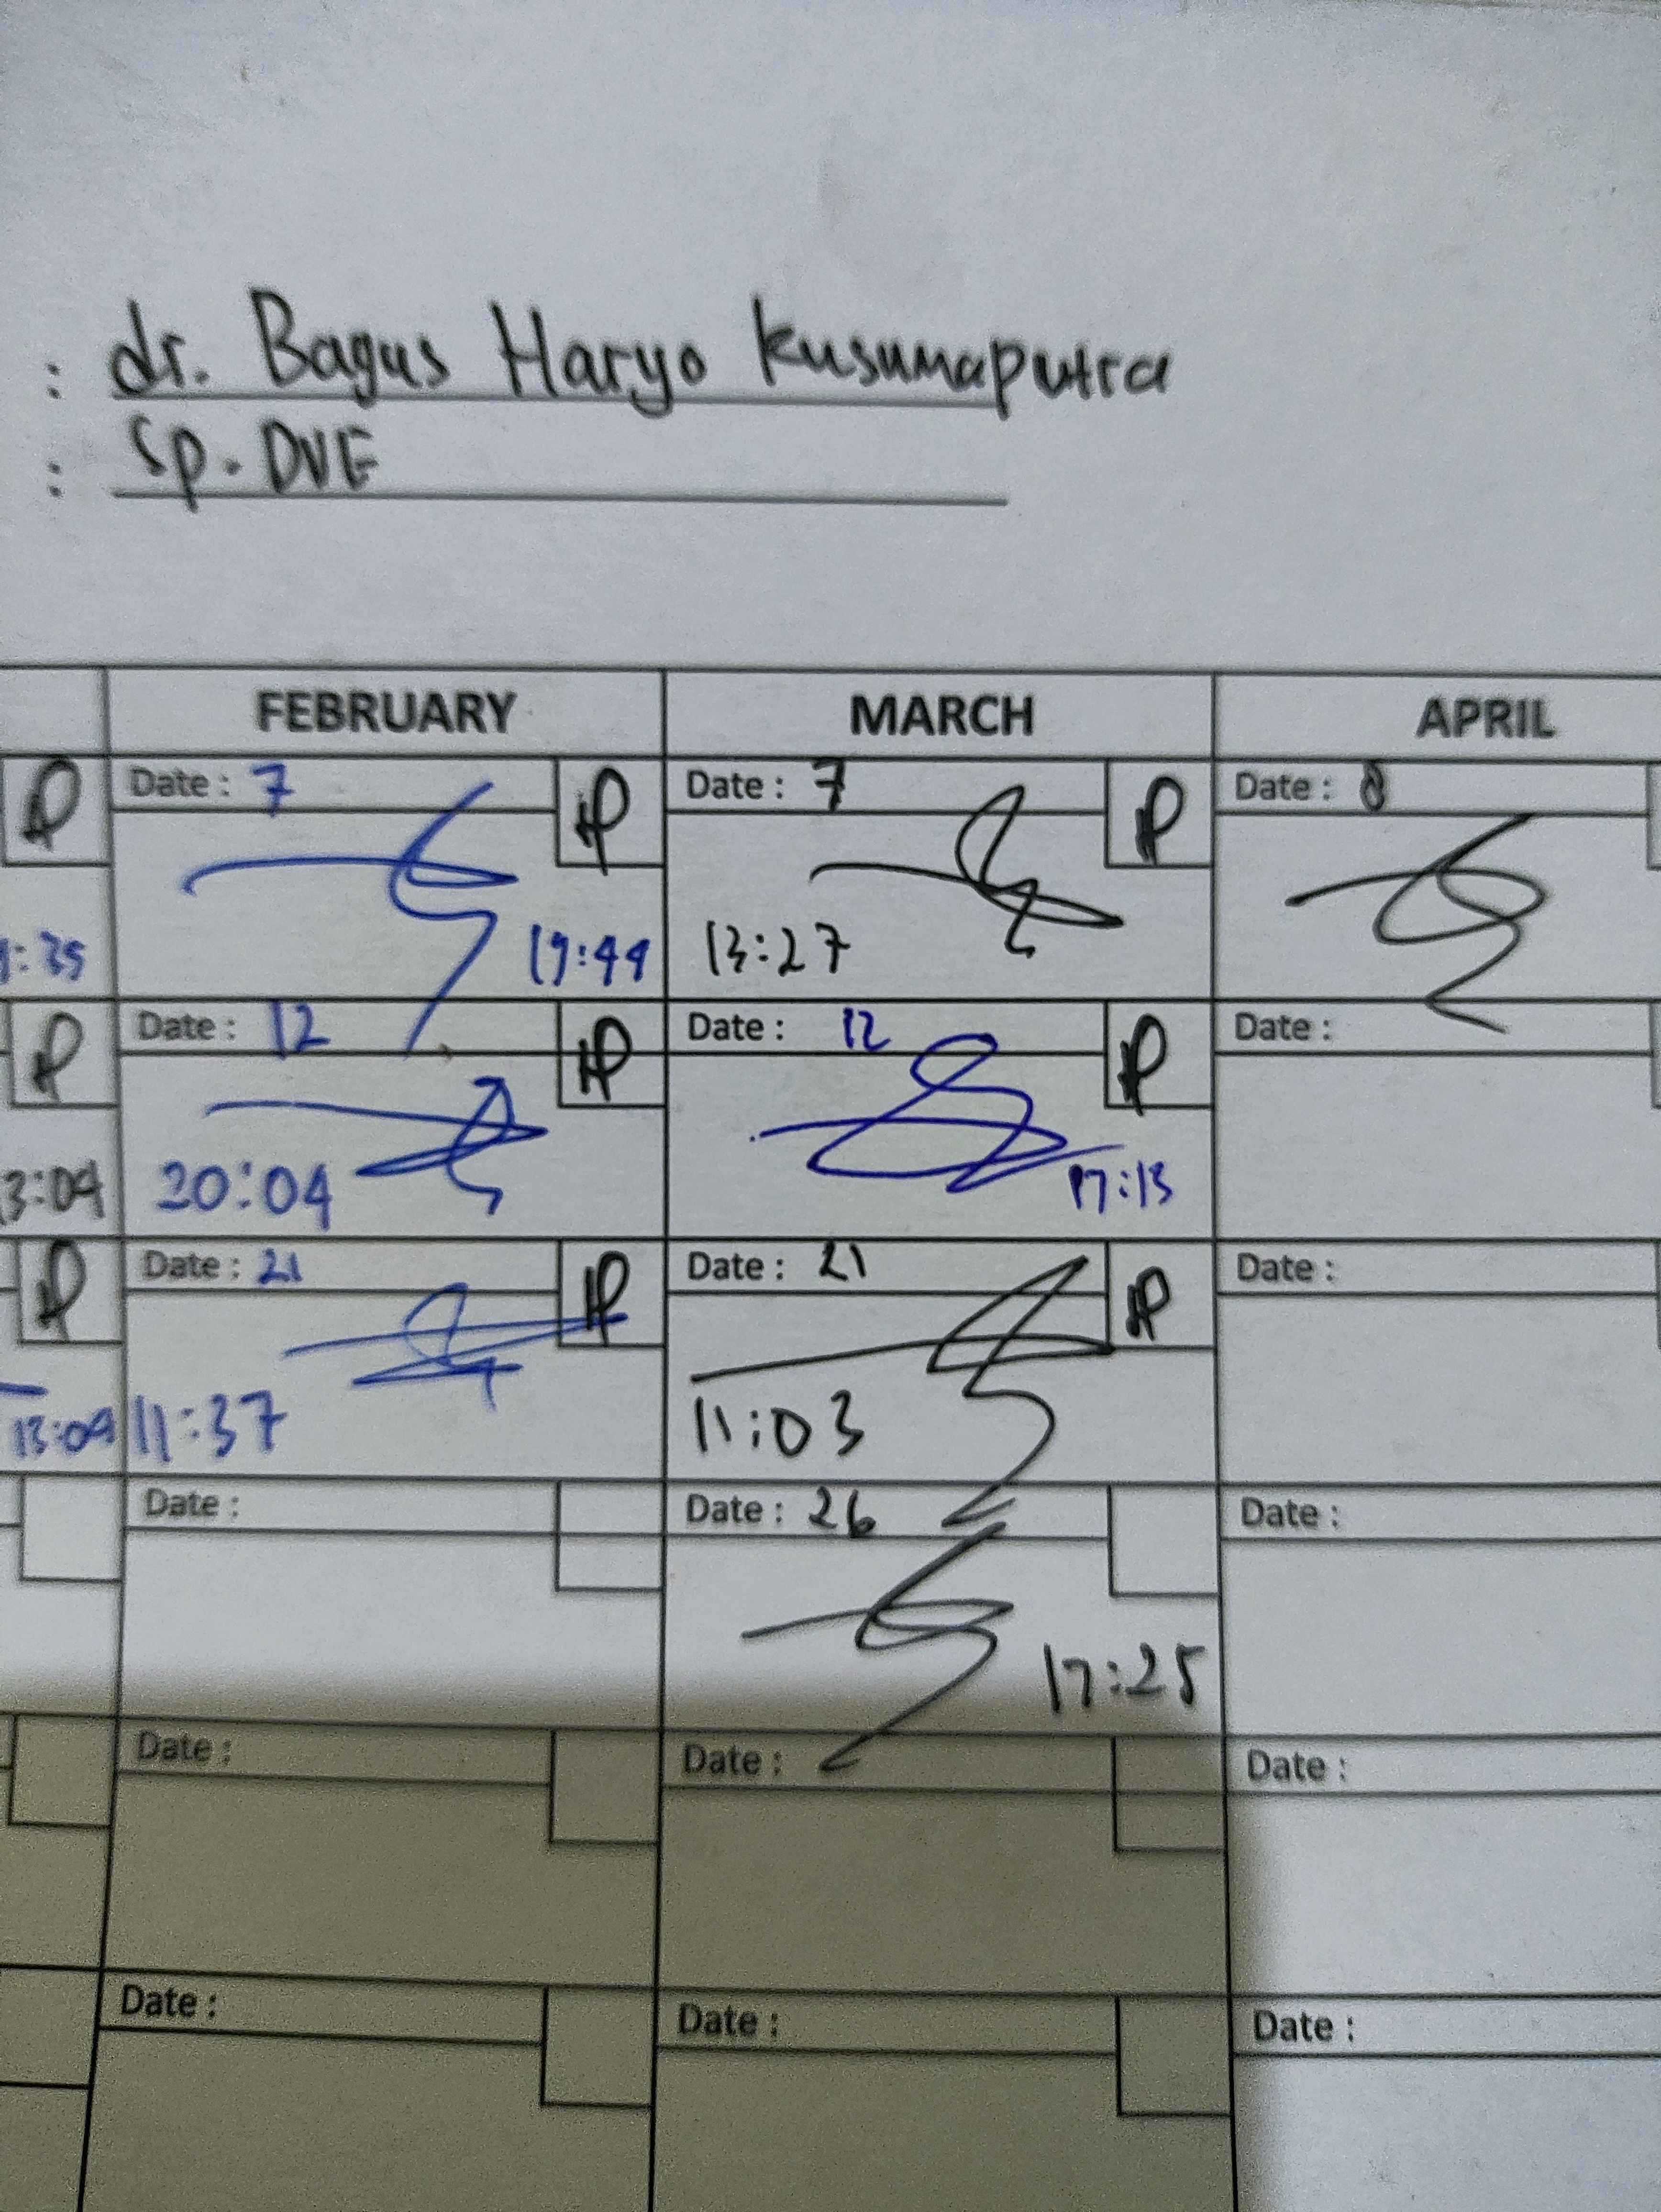 : dr. Bagus Haryo Kusumaputra
: Sp. DVE
FEBRUARY MARCH APRIL
Date : 7 Date : 7 Date : 8
:35 19:44 13:27
Date : 12 Date : 12 Date :
3:04 20:04 17:13
Date : 21 Date : 21 Date :
13:09 11:37 11:03
Date : Date : 26 Date :
17:25
Date : Date : Date :
Date : Date : Date :